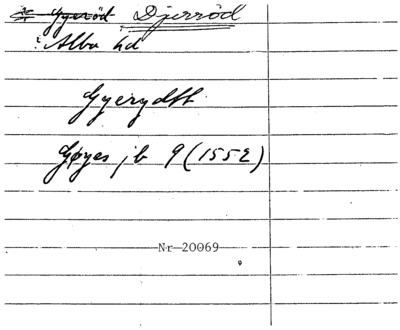 St. Gyeröd Djurröd
: Albo hd
Gyerydtt
Gøyes jb 9 (1552)
Nr 20069